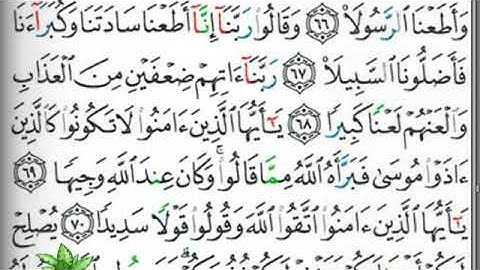 وَأَطَعْنَا ٱلرَّسُولَا۠ ٦٦ وَقَالُوا۟ رَبَّنَآ إِنَّآ أَطَعْنَا سَادَتَنَا وَكُبَرَآءَنَا
فَأَضَلُّونَا ٱلسَّبِيلَا۠ ٦٧ رَبَّنَآ ءَاتِهِمْ ضِعْفَيْنِ مِنَ ٱلْعَذَابِ
وَٱلْعَنْهُمْ لَعْنًا كَبِيرًا ٦٨ يَٰٓأَيُّهَا ٱلَّذِينَ ءَامَنُوا۟ لَا تَكُونُوا۟ كَٱلَّذِينَ
ءَاذَوْا۟ مُوسَىٰ فَبَرَّأَهُ ٱللَّهُ مِمَّا قَالُوا۟ ۚ وَكَانَ عِندَ ٱللَّهِ وَجِيهًا ٦٩
يَٰٓأَيُّهَا ٱلَّذِينَ ءَامَنُوا۟ ٱتَّقُوا۟ ٱللَّهَ وَقُولُوا۟ قَوْلًا سَدِيدًا ٧٠ يُصْلِحْ